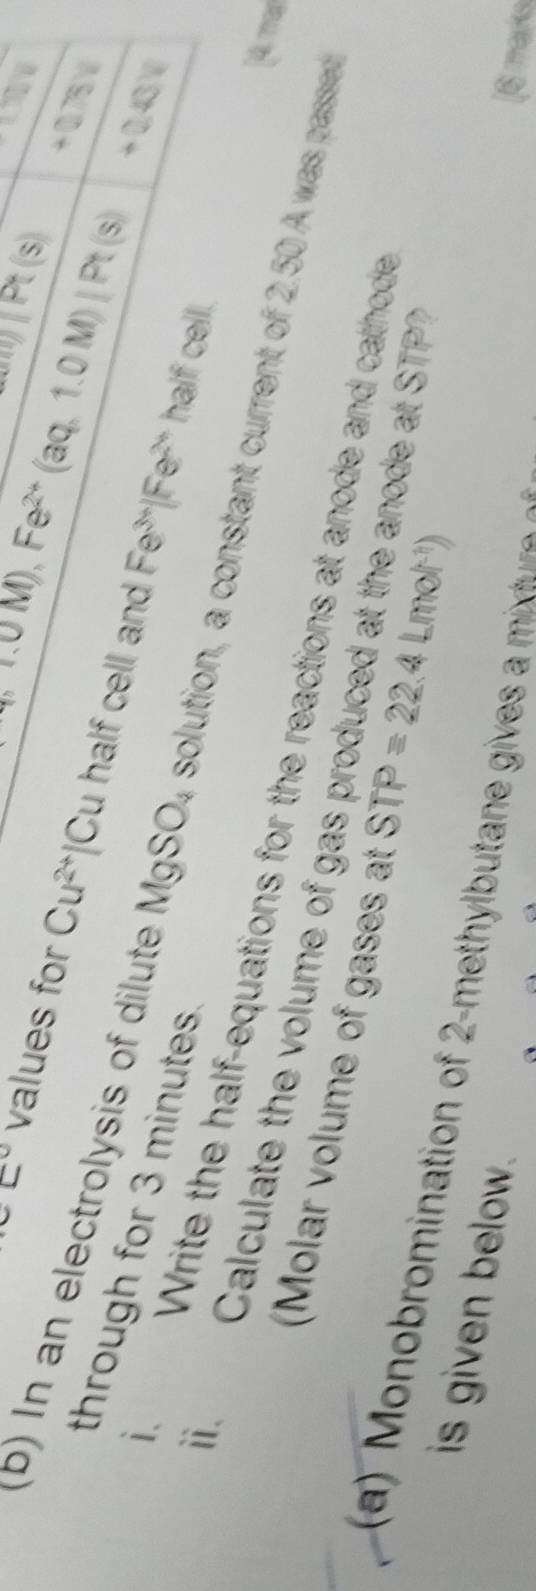 1.10 V
| Pt (s)
+ 0.76 V
1.0 M), Fe²⁺ (aq, 1.0 M) | Pt (s)
+ 0.43 V
E° values for Cu²⁺|Cu half cell and Fe³⁺|Fe²⁺ half cell.
[4
(b) In an electrolysis of dilute MgSO₄ solution, a constant current of 2.50 A was passed
through for 3 minutes.
i. Write the half-equations for the reactions at anode and cathode
ii. Calculate the volume of gas produced at the anode at STP?
(Molar volume of gases at STP = 22.4 Lmol⁻¹)
[6 marks
(a) Monobromination of 2-methylbutane gives a mixture of
is given below.